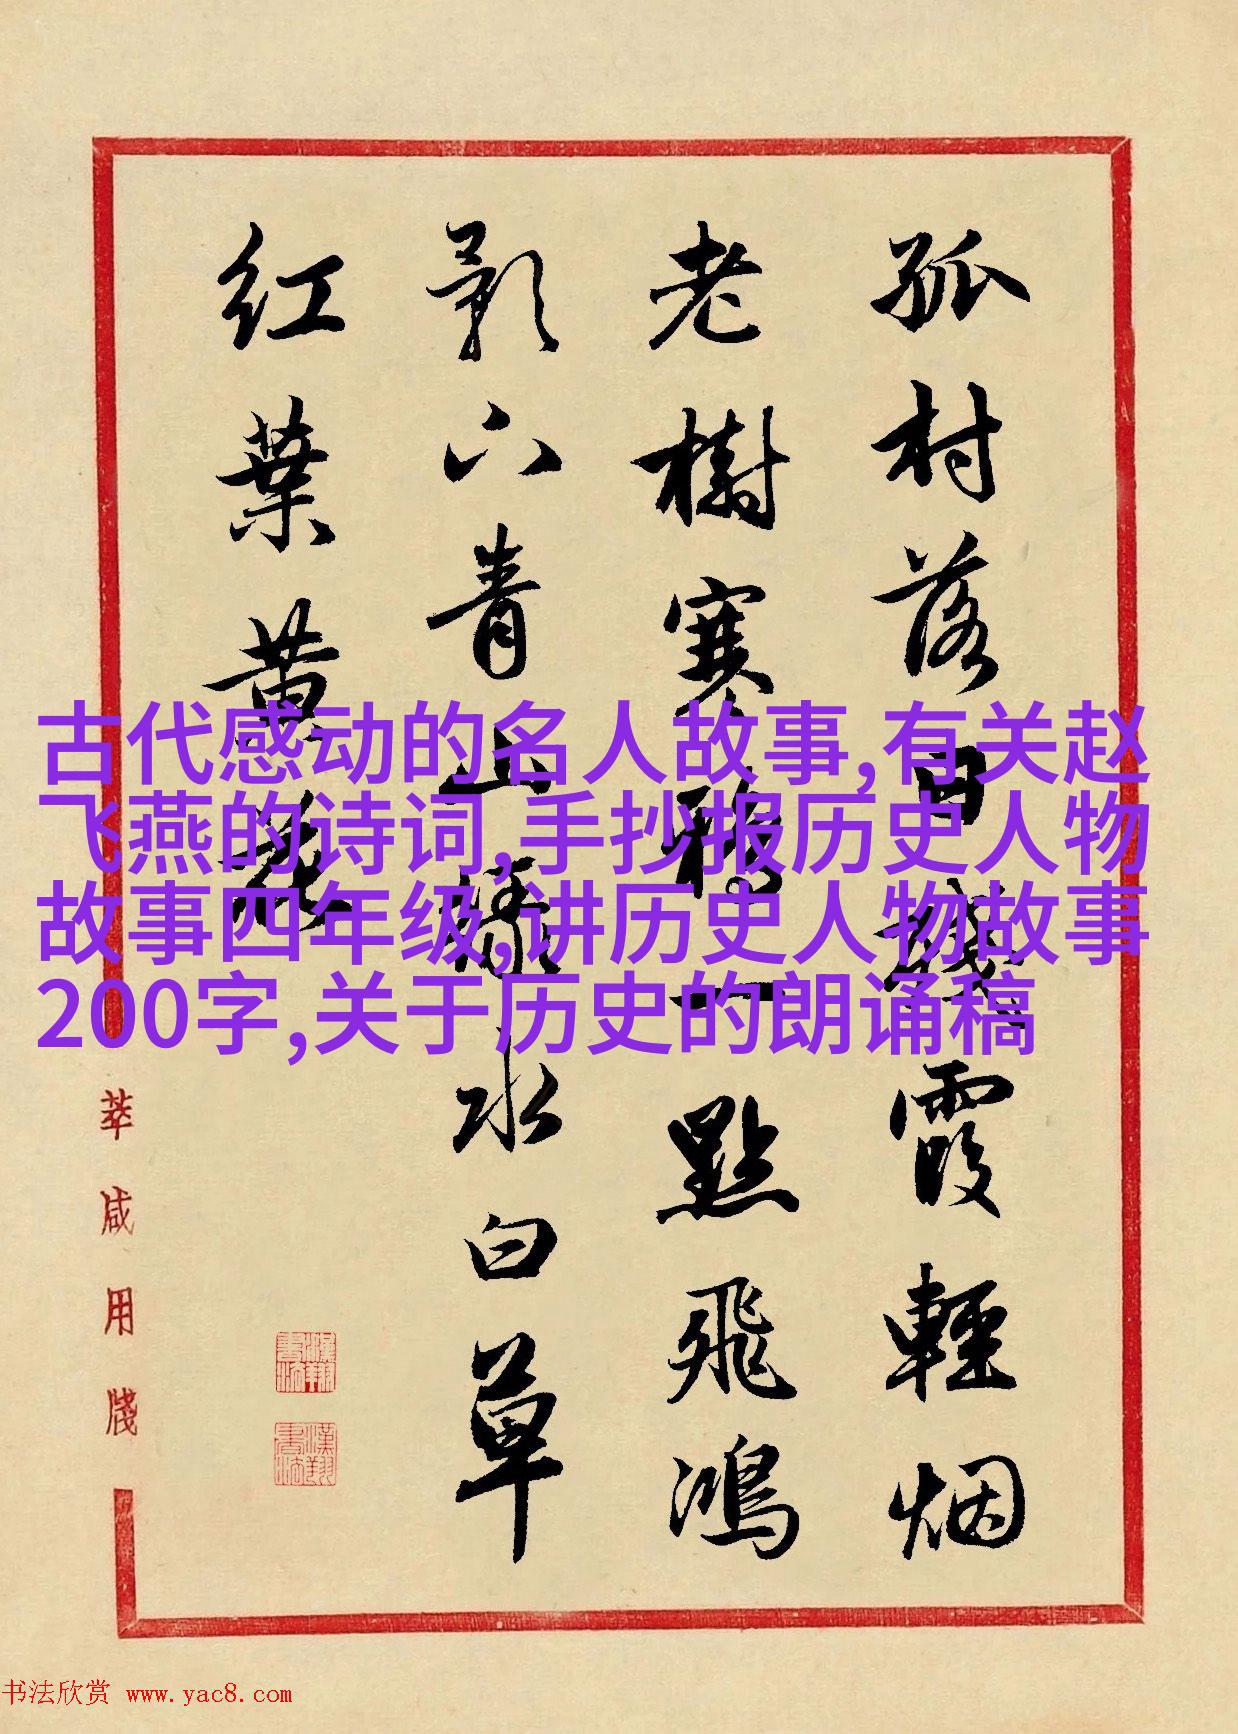 孤村落日殘霞輕烟
老樹寒鴉一點飛鴻
影下青山綠水白草
红葉黄花
古代感动的名人故事,有关赵
飞燕的诗词,手抄报历史人物
故事四年级,讲历史人物故事
200字,关于历史的朗诵稿
漢翔書法
漢翔書法
书法欣赏 www.yac8.com